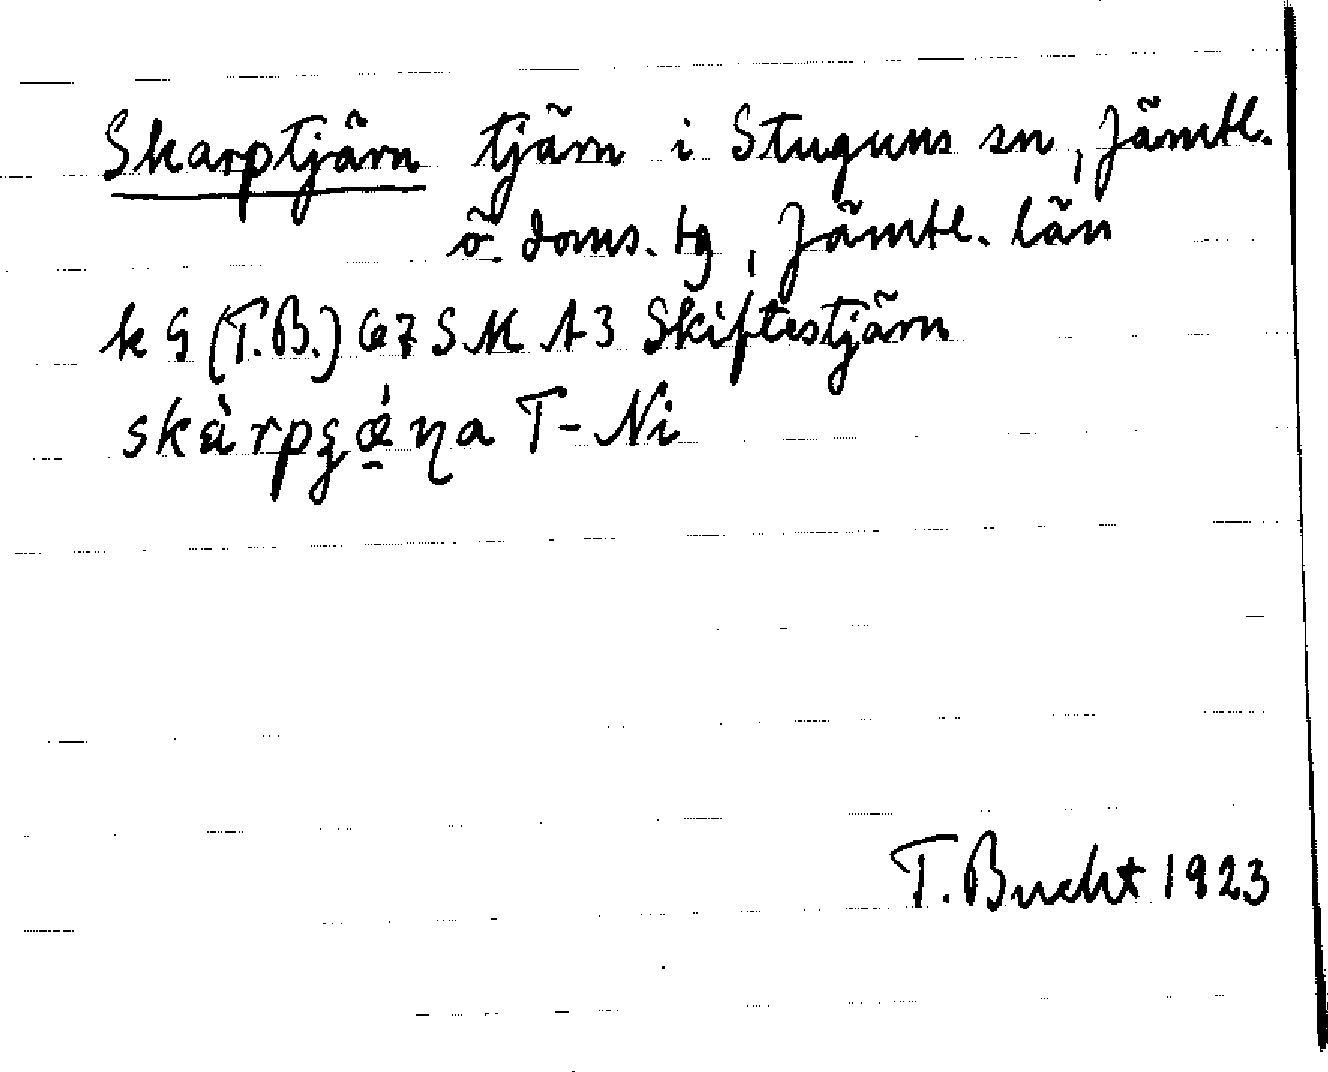 Skarptjärn tjärn i Stuguns sn, Jämtl.
ö. doms. tg, Jämtl. län
k G (T.B.) 67 S M A3 Skiftestjärn
T-Ni
T. Bucht 1923